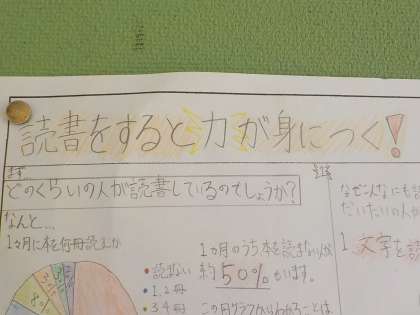 読書をすると力が身につく!
まず、
どのくらいの人が読書しているのでしょうか?
なんと…
1ヵ月に本を何冊読むか
8%
・読まない
・1.2冊
・3.4冊
1ヵ月のうち本を読まない人が
約50%もいます。
この円グラフからわかることは
なぜこんなにも読
だいたいの人が
1 文字を読